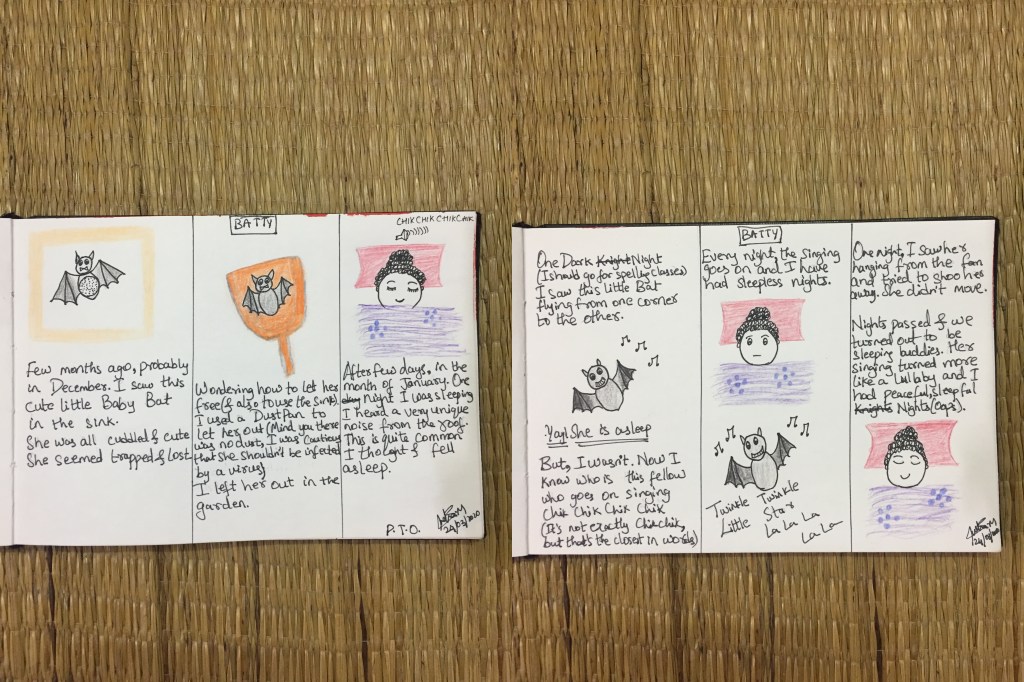 Few months ago, probably
in December. I saw this
cute little Baby Bat
in the sink.
She was all cuddled & cute
She seemed trapped & lost
BATTY
Wondering how to let her
free (& also to use the sink).
I used a DustPan to
let her out (Mind you there
was no dust, I was cautious
that she shouldn't be infected
by a virus)
I left her out in the
garden.
CHIK CHIK CHIK CHIK
After few days, in the
month of January. One
night I was sleeping
I heard a very unique
noise from the roof.
This is quite common
I thought & fell
asleep.
P.T.O.
24/03/2020
One Dark Knight Night
(I should go for spelling classes)
I saw this little Bat
flying from one corner
to the other.
Yay! She is asleep
But, I wasn't. Now I
know who is this fellow
who goes on singing
Chik Chik Chik Chik
(It's not exactly Chik chik,
but that's the closest in words)
BATTY
Every night, the singing
goes on and I have
had sleepless nights.
Twinkle Twinkle
Little Star
La La La
La La
One night, I saw her
hanging from the fan
and tried to shoo her
away. She didn't move.
Nights passed & we
turned out to be
sleeping buddies. Her
singing turned more
like a Lullaby and I
had peaceful, sleepful
Knights Nights (Oops).